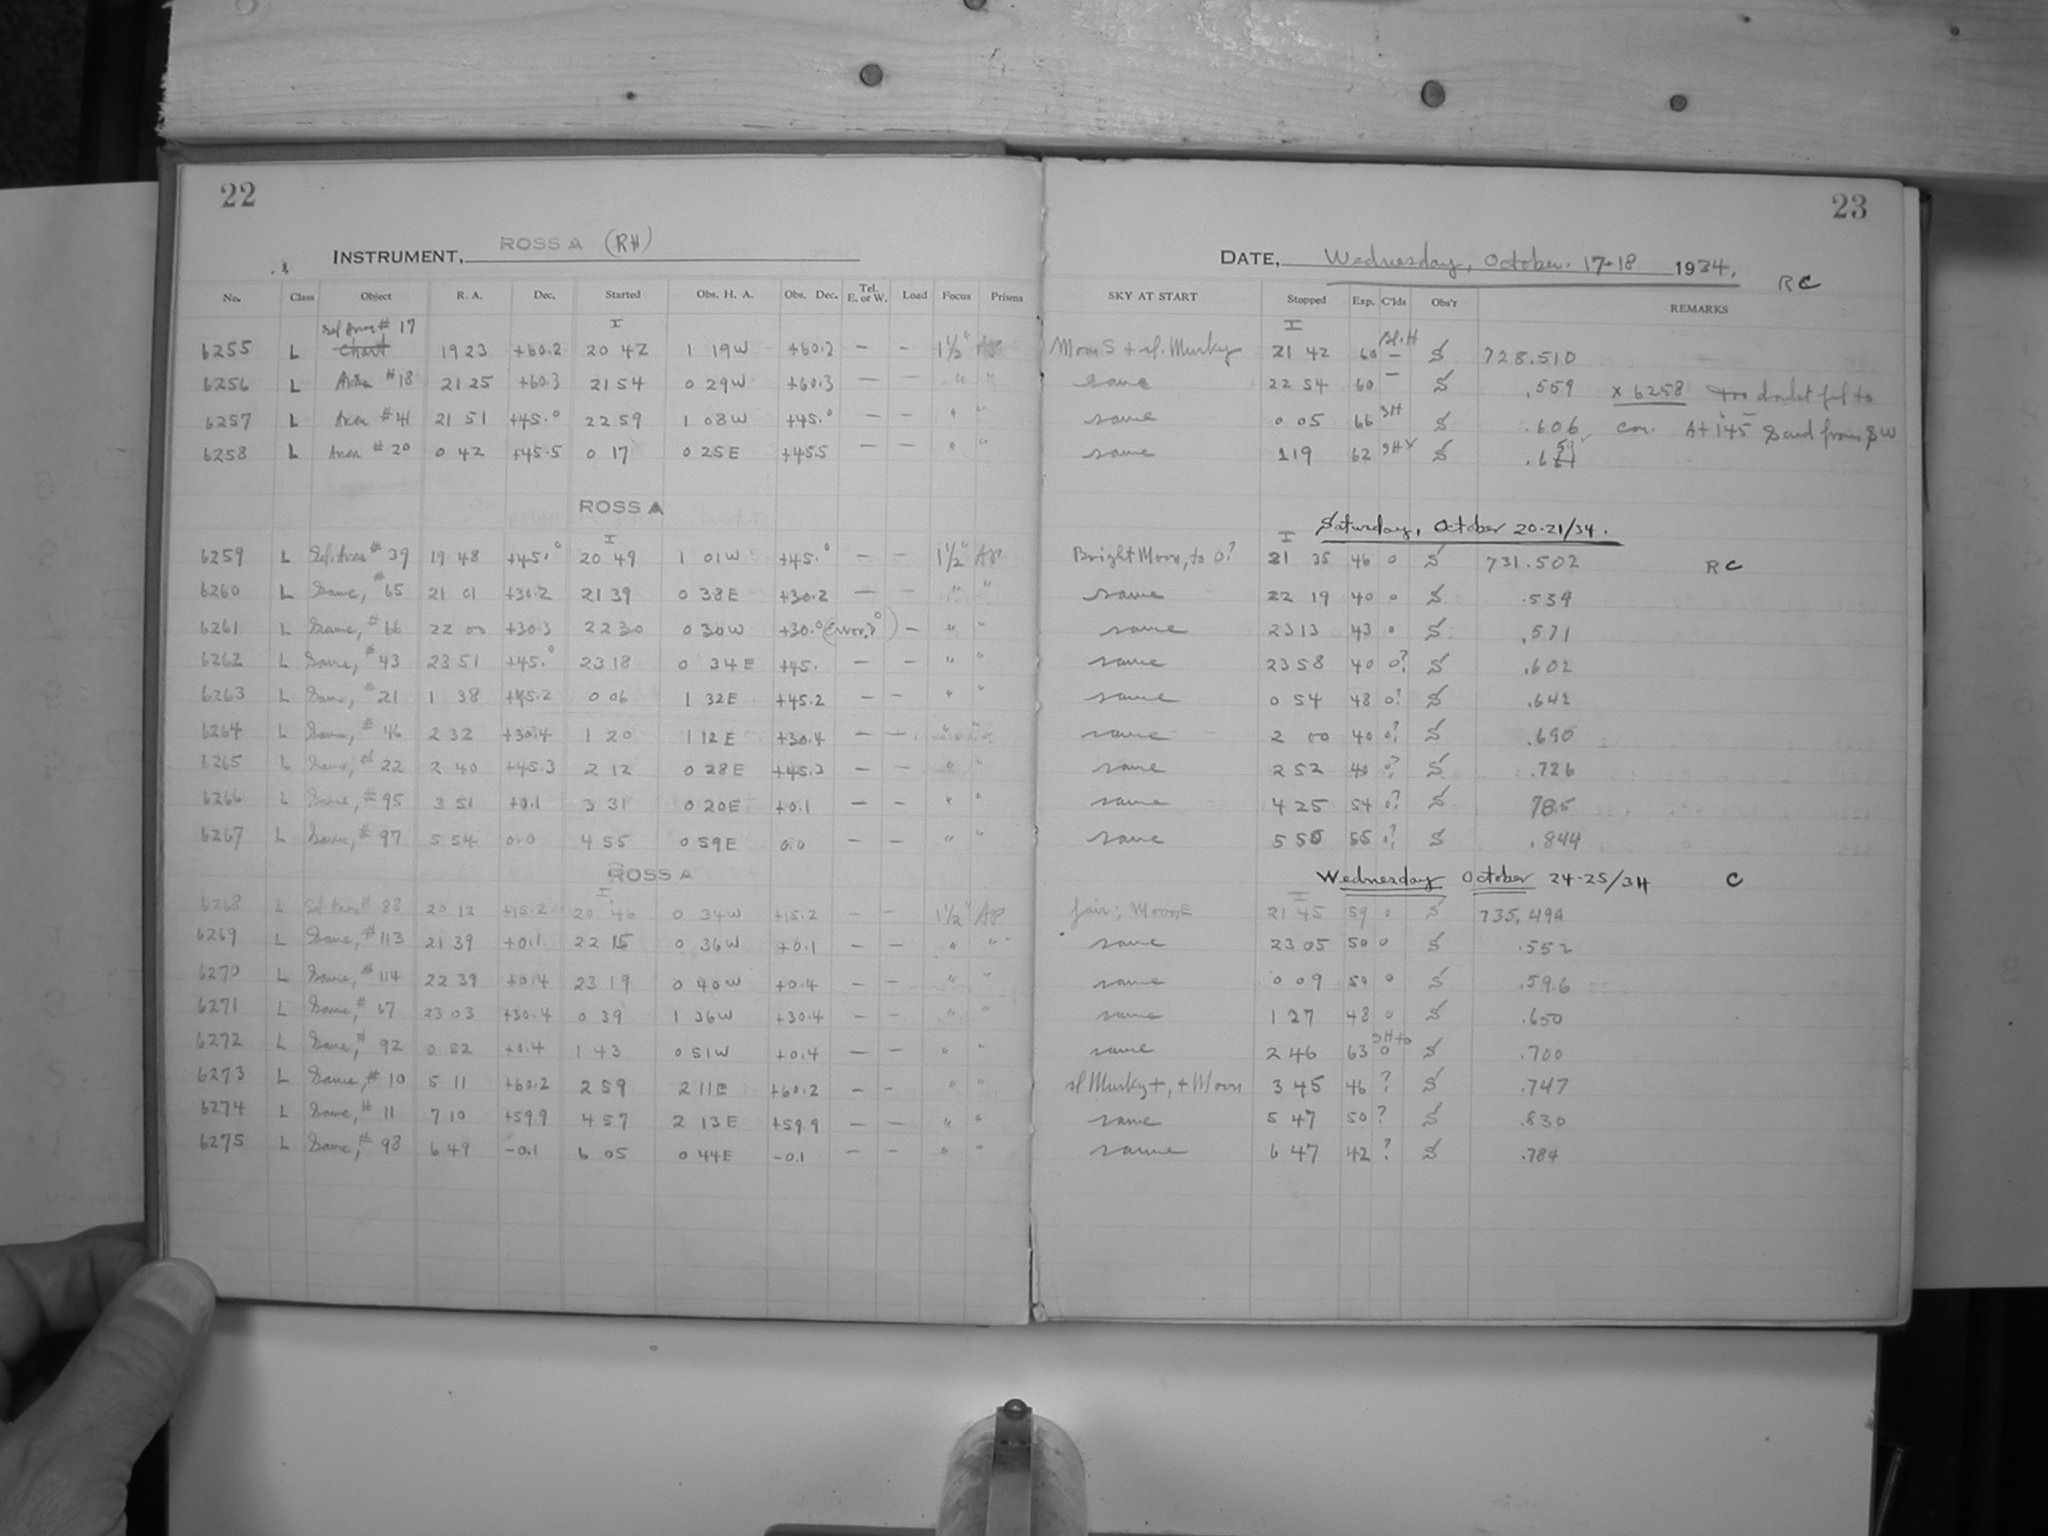 22
INSTRUMENT, ROSS A (RH)
No. Class Object R. A. Dec. Started Obs. H. A. Obs. Dec. Tel. E. or W. Load Focus Prisms
Sel. Area # 17 I
6255 L Chart 19 23 +60.2 20 42 1 19W +60.2 — — 1½" Ap.
6256 L Area #18 21 25 +60.3 21 54 0 29W +60.3 — — " "
6257 L Area #41 21 51 +45.° 22 59 1 08W +45.° — — " "
6258 L Area #20 0 42 +45.5 0 17 0 25E +45.5 " "
ROSS A
I
6259 L Sel. Area # 39 19 48 +45.° 20 49 1 01W +45.° — — 1½" Ap
6260 L Same, #65 21 01 +30.2 21 39 0 38E +30.2 — — " "
6261 L Same, #66 22 00 +30.3 22 30 0 30W +30.° (Error, 3°) — " "
6262 L Same, #43 23 51 +45.° 23 18 0 34E +45. — — " "
6263 L Same, #21 1 38 +45.2 0 06 1 32E +45.2 — — " "
6264 L Same, #46 2 32 +30.4 1 20 1 12E +30.4 — — " "
6265 L Same, #22 2 40 +45.3 2 12 0 28E +45.3 — — " "
6266 L Same, #95 3 51 +0.1 3 31 0 20E +0.1 — — " "
6267 L Same, #97 5 54 0.0 4 55 0 59E 0.0 — — " "
ROSS A
I
6268 L Sel. Area # 88 20 12 +15.2 20 46 0 34W +15.2 — — 1½" Ap
6269 L Same, #113 21 39 +0.1 22 15 0 36W +0.1 — — " "
6270 L Same, #114 22 39 +0.4 23 19 0 40W +0.4 — — " "
6271 L Same, # 67 23 03 +30.4 0 39 1 36W +30.4 — — " "
6272 L Same, # 92 0 52 +0.4 1 43 0 51W +0.4 — — " "
6273 L Same, # 10 5 11 +60.2 2 59 2 11E +60.2 — — " "
6274 L Same, # 11 7 10 +59.9 4 57 2 13E +59.9 — — " "
6275 L Same, # 98 6 49 -0.1 6 05 0 44E -0.1 — — " "
23
DATE, Wednesday, October. 17-18 1934.
RC
SKY AT START Stopped Exp. C'lds Obs'r REMARKS
I
Moon S + sl. Murky 21 42 60 — S 728.510
same 22 54 60 — S .559 x 6258 too doubtful to
same 0 05 66 SH S .606 cor. S and from SW
same 1 19 62 SH S
Saturday, October 20-21/34.
I
Bright Moon, to 0? 21 35 46 0 S 731.502 RC
same 22 19 40 0 S .539
same 23 13 43 0 S .571
same 23 58 40 0? S .602
same 0 54 48 0? S .642
same 2 00 40 0? S .690
same 2 52 40 0? S .726
same 4 25 54 0? S 785
same 5 50 55 0? S .844
Wednesday October 24-25/34 C
I
fair; Moon E 21 45 59 0 S 735.494
same 23 05 50 0 S .552
same 0 09 50 0 S .596
same 1 27 48 0 S .650
same 2 46 63 SH to 0 S .700
sl Murky +, + Moon 3 45 46 ? S .747
same 5 47 50 ? S .830
same 6 47 42 ? S .784